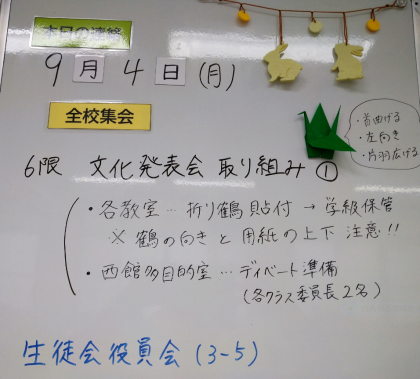 本日の連絡
9月4日(月)
全校集会
・首曲げる
・左向き
・片羽広げる
6限 文化発表会 取り組み①
・各教室…折り鶴貼付→学級保管
※鶴の向きと用紙の上下 注意!!
・西館多目的室…ディベート準備
(各クラス委員長2名)
生徒会役員会(3-5)